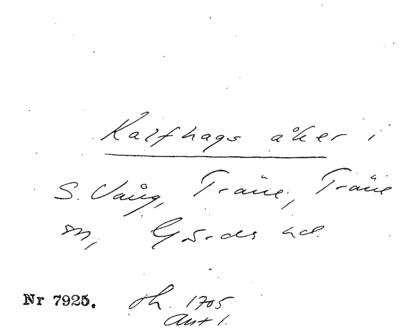 Kalfhags åker i
S. Vång, Träne, Träne
sn, Gärds hd.
Nr 7925. Th. 1705
Ant 1.